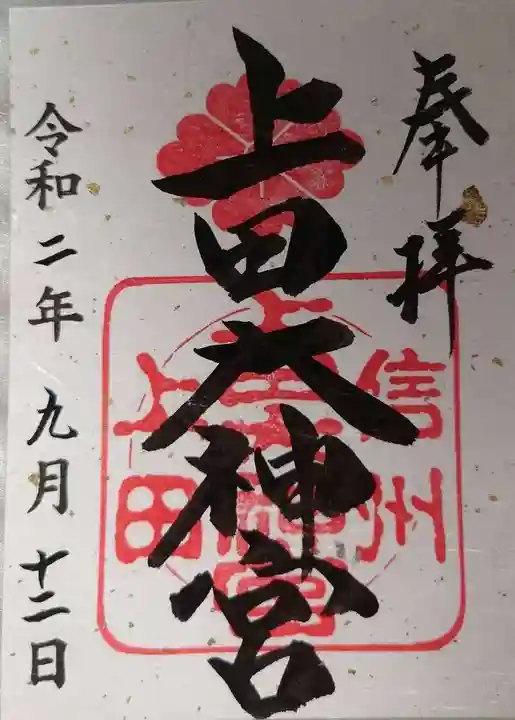 奉拝
上田大神宮
信州
上田
令和二年 九月 十二日